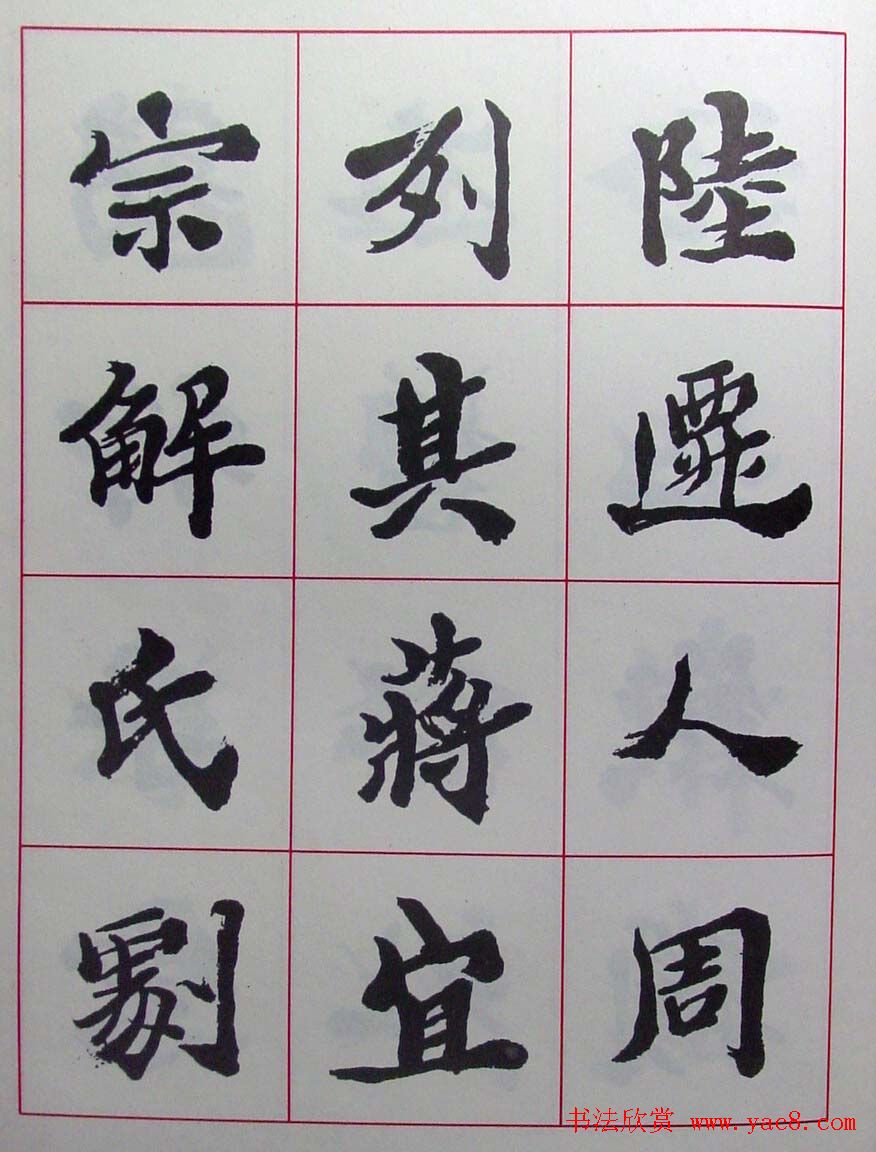 陸遷人周
列其蔣宜
宗解氏劇
书法欣赏 www.yac8.com